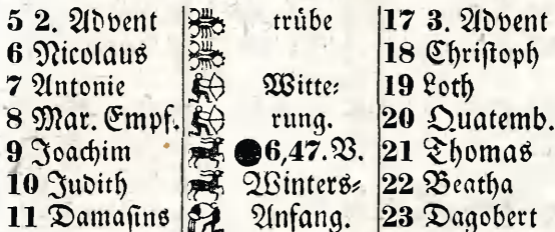 5 2. Advent trübe 17 3. Advent
6 Nicolaus 18 Chriſtoph
7 Antonie Witte⸗ 19 Loth
8 Mar. Empf. rung. 20 Quatemb.
9 Joachim ●6,47. V. 21 Thomas
10 Judith Winters⸗ 22 Beatha
11 Damaſins Anfang. 23 Dagobert